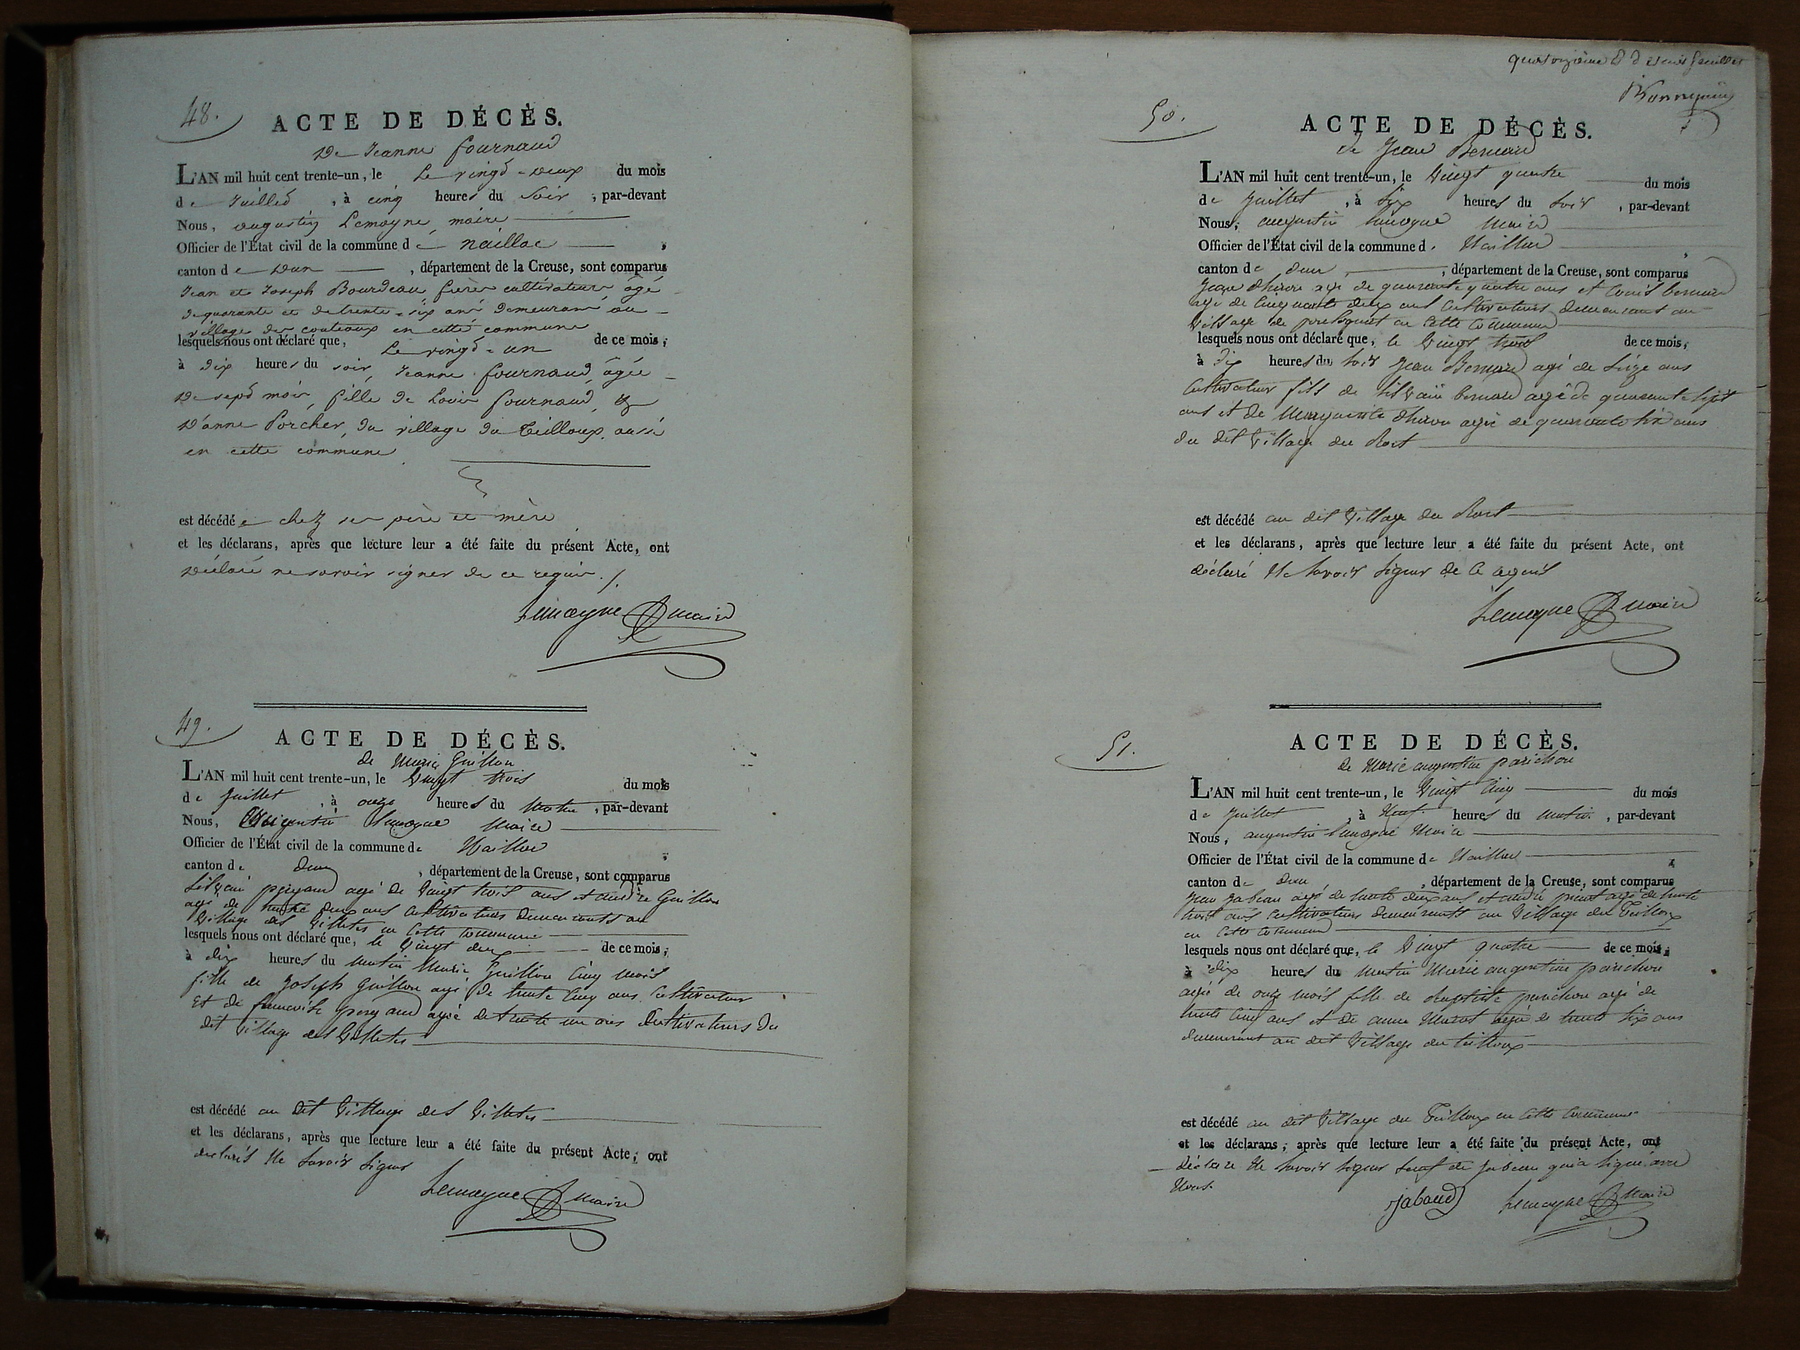 48.
ACTE DE DÉCÈS.
De Jeanne fournaud
L'AN mil huit cent trente-un, le Le vingt-deux du mois
de Juillet, à cinq heures du soir, par-devant
Nous, augustin Lemoyne, maire
Officier de l'État civil de la commune de naillac,
canton de Dun, département de la Creuse, sont comparus
Jean et Joseph Bourdeau frères cultivateurs âgé
de quarante et de trente-six ans demeurant au
village des couteaux en cette commune
lesquels nous ont déclaré que, Le vingt-un de ce mois,
à dix heures du soir, Jeanne fournaud, âgée
De sept mois, fille de Louis fournaud, &
D'anne Porcher, du village du Teilloux, aussi
en cette commune
est décédée chez ses père et mère
et les déclarans, après que lecture leur a été faite du présent Acte, ont
Déclaré ne savoir signer de ce requis./.
Lemoyne maire
49.
ACTE DE DÉCÈS.
de Marie Guillon
L'AN mil huit cent trente-un, le Vingt trois du mois
de Juillet, à onze heures du matin, par-devant
Nous, Augustin Lemoyne Maire
Officier de l'État civil de la commune de Naillac,
canton de dun, département de la Creuse, sont comparus
Silvain agé de Vingt trois ans et andré Guillon
agé de trente deux ans cultivateurs demeurants au
Village des Villettes en cette commune
lesquels nous ont déclaré que, le Vingt deux de ce mois,
à dix heures du matin Marie Guillon Cinq mois
fille de Joseph Guillon agé de trente Cinq ans Cultivateur
Et de agée de trente un ans Cultivateurs du
dit Village des Villettes
est décédé au dit Village des Villettes
et les déclarans, après que lecture leur a été faite du présent Acte, ont
declarés Ne Savoir Signer
Lemoyne maire
quatorzième et dernier feuillet
50.
ACTE DE DÉCÈS.
de Jean Bernard
L'AN mil huit cent trente-un, le Vingt quatre du mois
de Juillet, à Six heures du Soir, par-devant
Nous, augustin Lemoyne Maire
Officier de l'État civil de la commune de Naillac,
canton de dun, département de la Creuse, sont comparus
agé de quarante quatre ans et Louis bernard
agé de Cinquante deux ans Cultivateurs demeurants au
Village de en Cette Commune
lesquels nous ont déclaré que, le Vingt trois de ce mois,
à Dix heures du Soir Jean Bernard agé de Seize ans
Cultivateur fils de Silvain bernard agé de quarante Sept
ans et de Marguerite agée de quarante Six ans
du dit Village du
est décédé au dit Village du
et les déclarans, après que lecture leur a été faite du présent Acte, ont
déclaré Ne Savoir Signer de Ce
Lemoyne maire
51.
ACTE DE DÉCÈS.
de Marie augustine parichon
L'AN mil huit cent trente-un, le Vingt Cinq du mois
de Juillet, à heures du matin, par-devant
Nous, augustin Lemoyne Maire
Officier de l'État civil de la commune de Naillac,
canton de dun, département de la Creuse, sont comparus
Jean Jabeau agé de trente deux ans et andré agé de trente
trois ans Cultivateurs demeurants au Village du Teilloux
en Cette Commune
lesquels nous ont déclaré que, le Vingt quatre de ce mois,
à dix heures du Matin Marie augustine parichon
agée de onze mois fille de Baptiste parichon agé de
trente Cinq ans et de anne agée de trente Six ans
demeurant au dit Village du teilloux
est décédé au dit Village du Teilloux en Cette Commune
et les déclarans, après que lecture leur a été faite du présent Acte, ont
déclaré Ne Savoir Signer Sauf de Jabeau qui a Signé avec
Nous.
Jabaud Lemoyne Maire